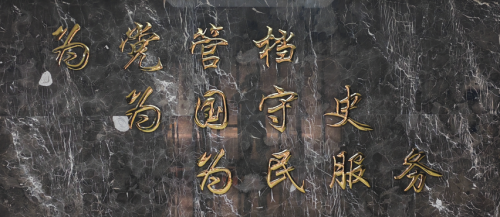 为党管档
为国守史
为民服务